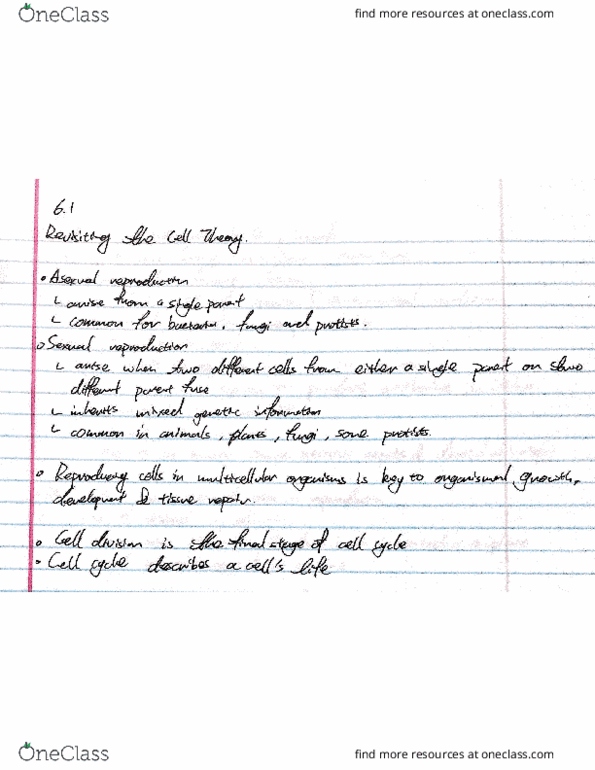 OneClass
find more resources at oneclass.com
6.1
Revisiting the Cell Theory.
• Asexual reproduction
└ arise from a single parent
└ common for bacteria, fungi and protists.
○ Sexual reproduction
└ arise when two different cells from either a single parent or two
different parent fuse
└ inherits mixed genetic information
└ common in animals, plants, fungi, some protists.
○ Reproducing cells in multicellular organisms is key to organismal growth,
development & tissue repair.
○ Cell division is the final stage of cell cycle
• Cell cycle describes a cell's life
OneClass
find more resources at oneclass.com